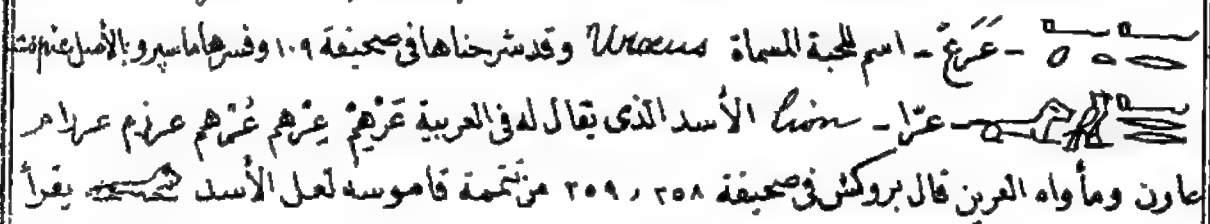 - عَرَعَ - اسم للحية المسماة Uraeus وقد شرحناها فى صحيفة ١٠٩ وفسرها ماسپرو بالأصل
- عرّا - Lion الأسد الذى يقال له فى العربية عَرْهَمْ عِرْهم عُرْهم عرزم عرزام
عارن ومأواه العرين قال بروكش فى صحيفة ٢٥٨ , ٢٥٩ من تتمة قاموسه لعل الأسد يقرأ